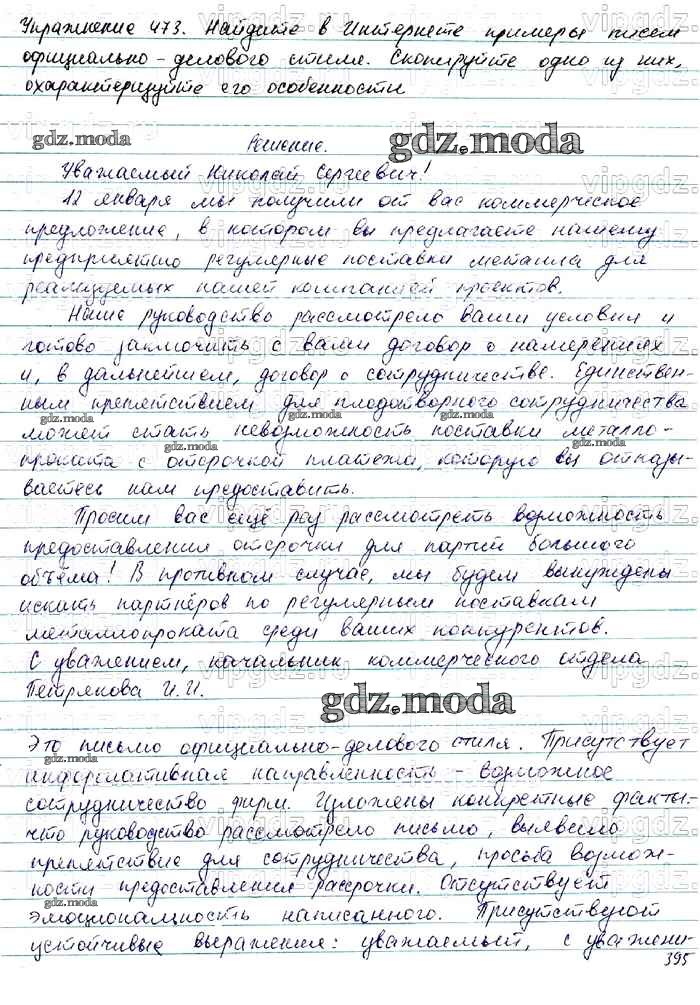 Упражнение 473. Найдите в Интернете примеры писем
официально-делового стиля. Скопируйте одно из них,
охарактеризуйте его особенности
gdz.moda
Решение.
gdz.moda
Уважаемый Николай Сергеевич!
12 января мы получили от вас коммерческое
предложение, в котором вы предлагаете нашему
предприятию регулярные поставки металла для
реализуемых нашей компанией проектов.
Наше руководство рассмотрело ваши условия и
готово заключить с вами договор о намерениях
и, в дальнейшем, договор о сотрудничестве. Единствен-
ным препятствием для плодотворного сотрудничества
gdz.moda
gdz.moda
может стать невозможность поставки металло-
gdz.moda
gdz.moda
проката с отсрочкой платежа, которую вы отказы-
ваетесь нам предоставить.
Просим вас ещё раз рассмотреть возможность
предоставления отсрочки для партий большого
объёма! В противном случае, мы будем вынуждены
искать партнёров по регулярным поставкам
металлопроката среди ваших конкурентов.
С уважением, начальник коммерческого отдела
Петрякова И.И.
gdz.moda
gdz.moda
Это письмо официально-делового стиля. Присутствует
информативная направленность - возможное
сотрудничество фирм. Изложены конкретные факты-
что руководство рассмотрело письмо, выявило
препятствие для сотрудничества, просьба возмож-
ности предоставления рассрочки. Отсутствует
gdz.moda
gdz.moda
эмоциональность написанного. Присутствуют
устойчивые выражения: уважаемый, с уважени-
395